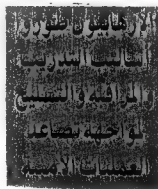 الإرهابيون طوروا
أساليب التدريب
والمراقبة والتسليح
لمواجهة تصاعد
العمليات الأمنية